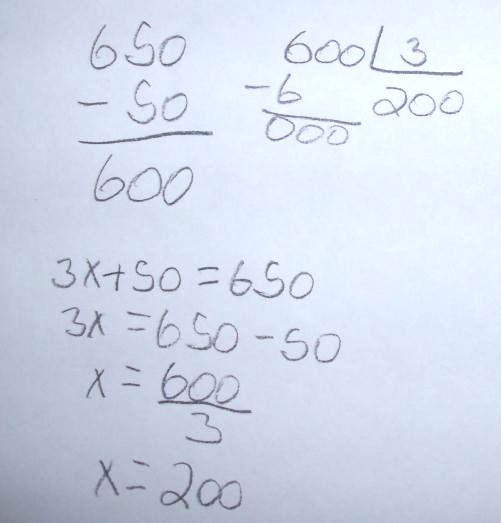 650
- 50
600
600 3
- 6 200
000
3x+50 = 650
3x = 650 - 50
x = 600
3
x = 200